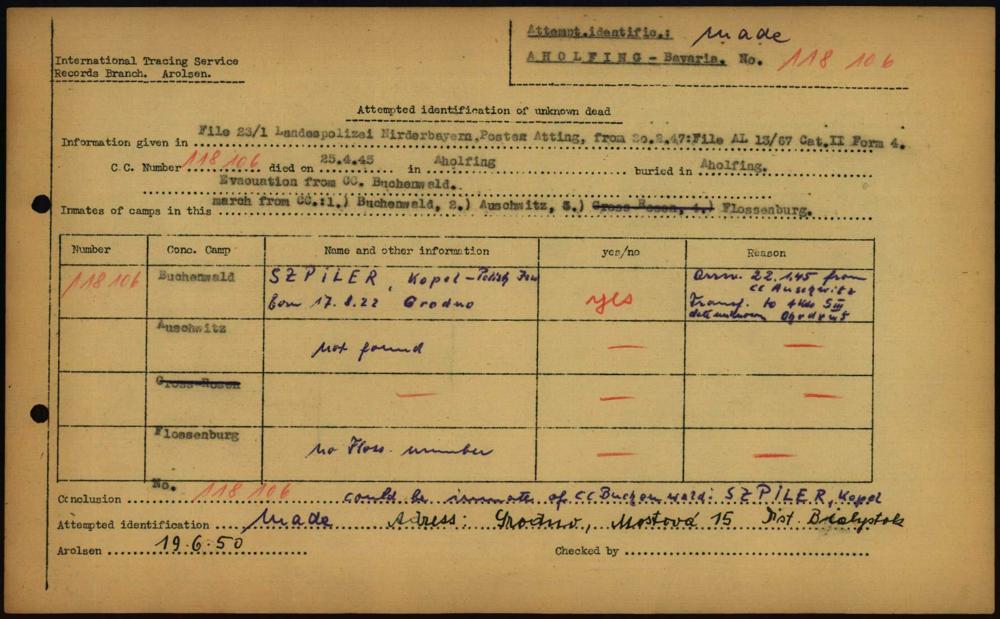 Attempt.identific.: Made
International Tracing Service
Records Branch. Arolsen.
AHOLFING - Bavaria. No. 118 106
Attempted identification of unknown dead
Information given in File 23/1 Landespolizei Nirderbayern,Posten Atting, from 20.2.47:File AL 13/67 Cat.II Form 4.
C.C. Number 118 106 died on 25.4.45 in Aholfing buried in Aholfing.
Evacuation from CC. Buchenwald.
Inmates of camps in this march from CC.:1.) Buchenwald, 2.) Auschwitz, 3.) Gross-Rosen, 4.) Flossenburg.
Number Conc. Camp Name and other information yes/no Reason
118106 Buchenwald SZPILER, Kopel - Polish Jew yes arrv. 22.1.45 from
born 17.8.22 Grodno CC Auschwitz
Transf. to SIII
date unknown
Auschwitz not found — —
Gross-Rosen — — —
Flossenburg no Floss. number — —
Conclusion No. 118 106 could be inmate of CC Buchenwald: SZPILER, Kopel
Attempted identification Made Adress: Grodno, Mostová 15 Dist. Bialystok
Arolsen 19.6.50 Checked by